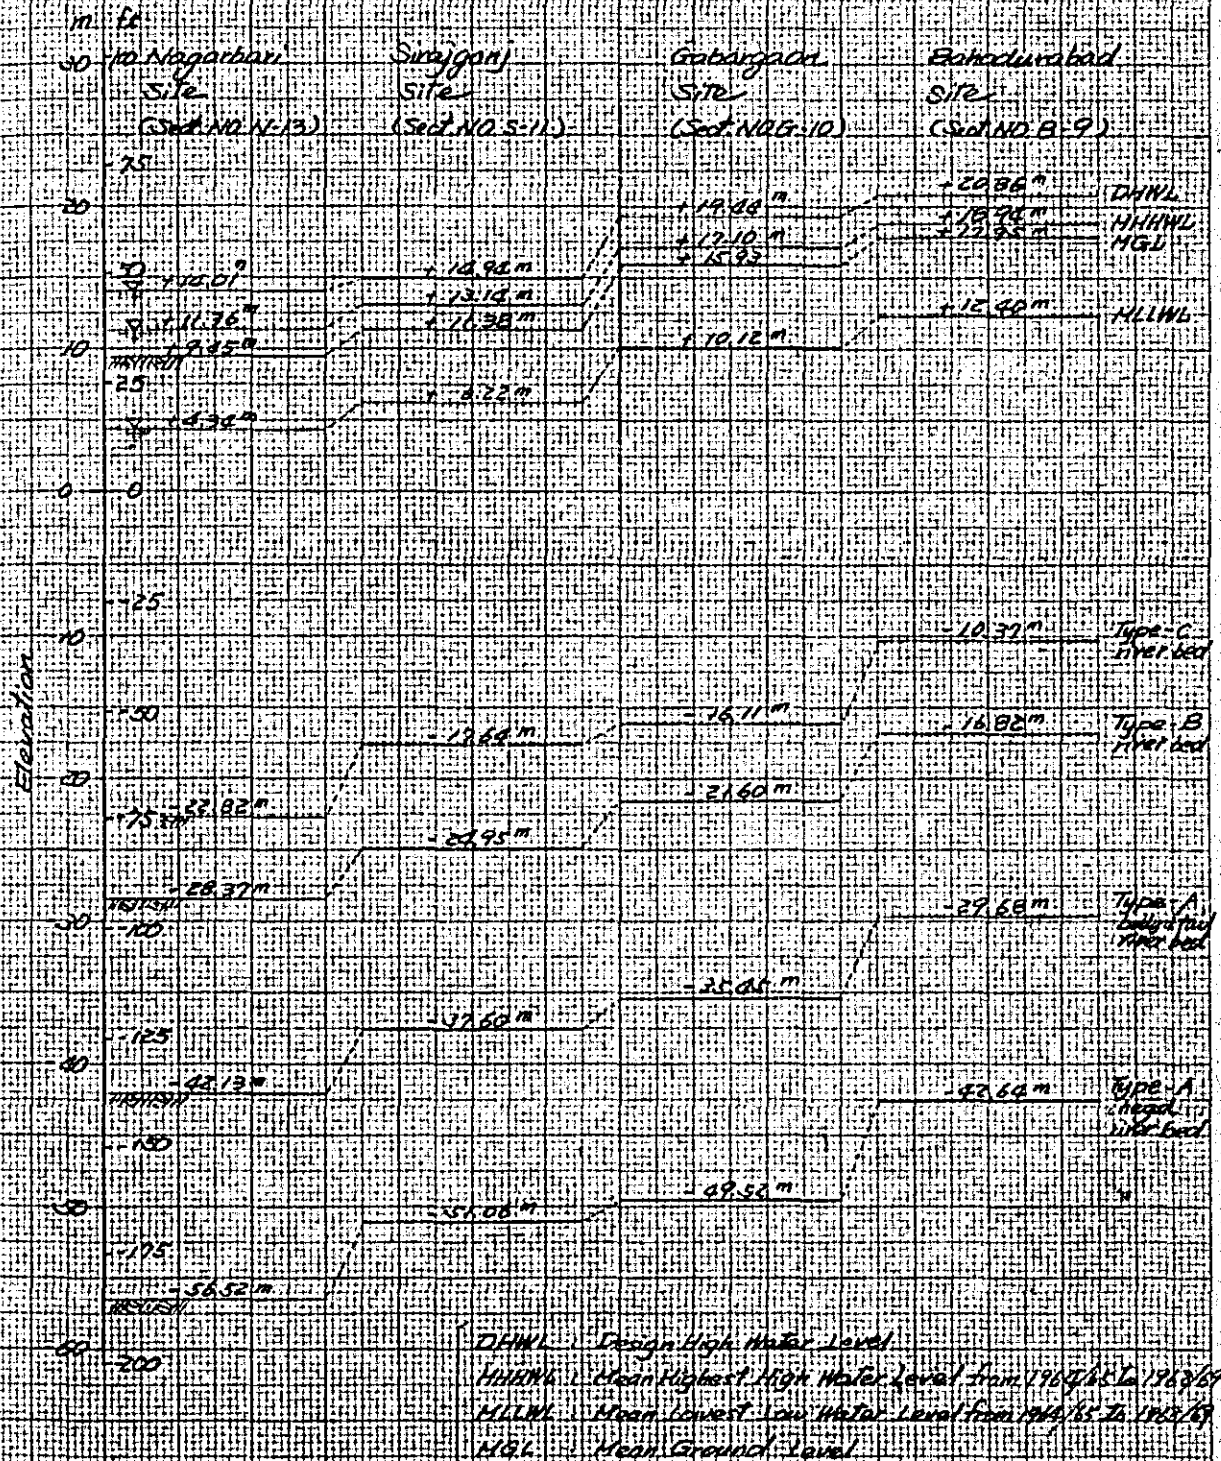 m ft
30 100
Nagarbari
Site
(Sect. NO. N-13)
Sirajganj
Site
(Sect. NO. S-11)
Gabargaon
Site
(Sect. NO. G-10)
Bahadurabad
Site
(Sect. NO. B-9)
75
20
50
10
25
0 0
-25
-10
-50
-20
-75
-30
-100
-125
-40
-150
-50
-175
-60
-200
Elevation
+14.01 m
+11.76 m
+9.45 m
+4.34 m
-22.82 m
-28.37 m
-42.13 m
-56.52 m
+14.94 m
+13.14 m
+11.38 m
+6.22 m
-17.64 m
-24.95 m
-37.60 m
-51.06 m
+19.44 m
+17.10 m
+15.93
+10.12 m
-16.11 m
-21.60 m
-35.45 m
-49.52 m
+20.86 m DHWL
+18.94 m HHHWL
+17.95 m MGL
+12.40 m MLLWL
-10.37 m Type-C
river bed
-16.82 m Type-B
river bed
-29.68 m Type-A
river bed
-42.64 m Type-A
head
river bed
DHWL : Design High Water Level
MHHWL : Mean Highest High Water Level from 1964/65 to 1968/69
MLLWL : Mean Lowest Low Water Level from 1964/65 to 1968/69
MGL : Mean Ground Level